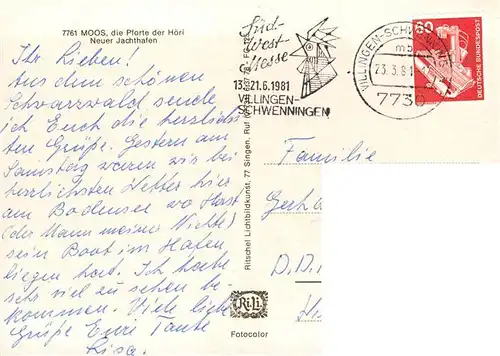 7761 MOOS, die Pforte der Höri
Neuer Jachthafen
Ihr Lieben!
Aus dem schönen
Schwarzwald sende
ich Euch die herzlichs
ten Grüße. Gestern am
Samstag waren wir bei
herzlichsten Wetter hier
am Bodensee wo Horst
(der Mann meiner Nichte)
sein Boot im Hafen
liegen hat. Ich habe
sehr viel zu sehen be-
kommen. Viele liebe
Grüße Eure Tante
Lisa.
Ritschel Lichtbildkunst, 77 Singen. Ruf
Ri.Li.
Fotocolor
Süd-
West-
Messe
13.-21.6.1981
VILLINGEN-
SCHWENNINGEN
VILLINGEN-SCHWENNINGEN
mb
23.3.81
7730
60
DEUTSCHE BUNDESPOST
Familie
Gerha
D.D.